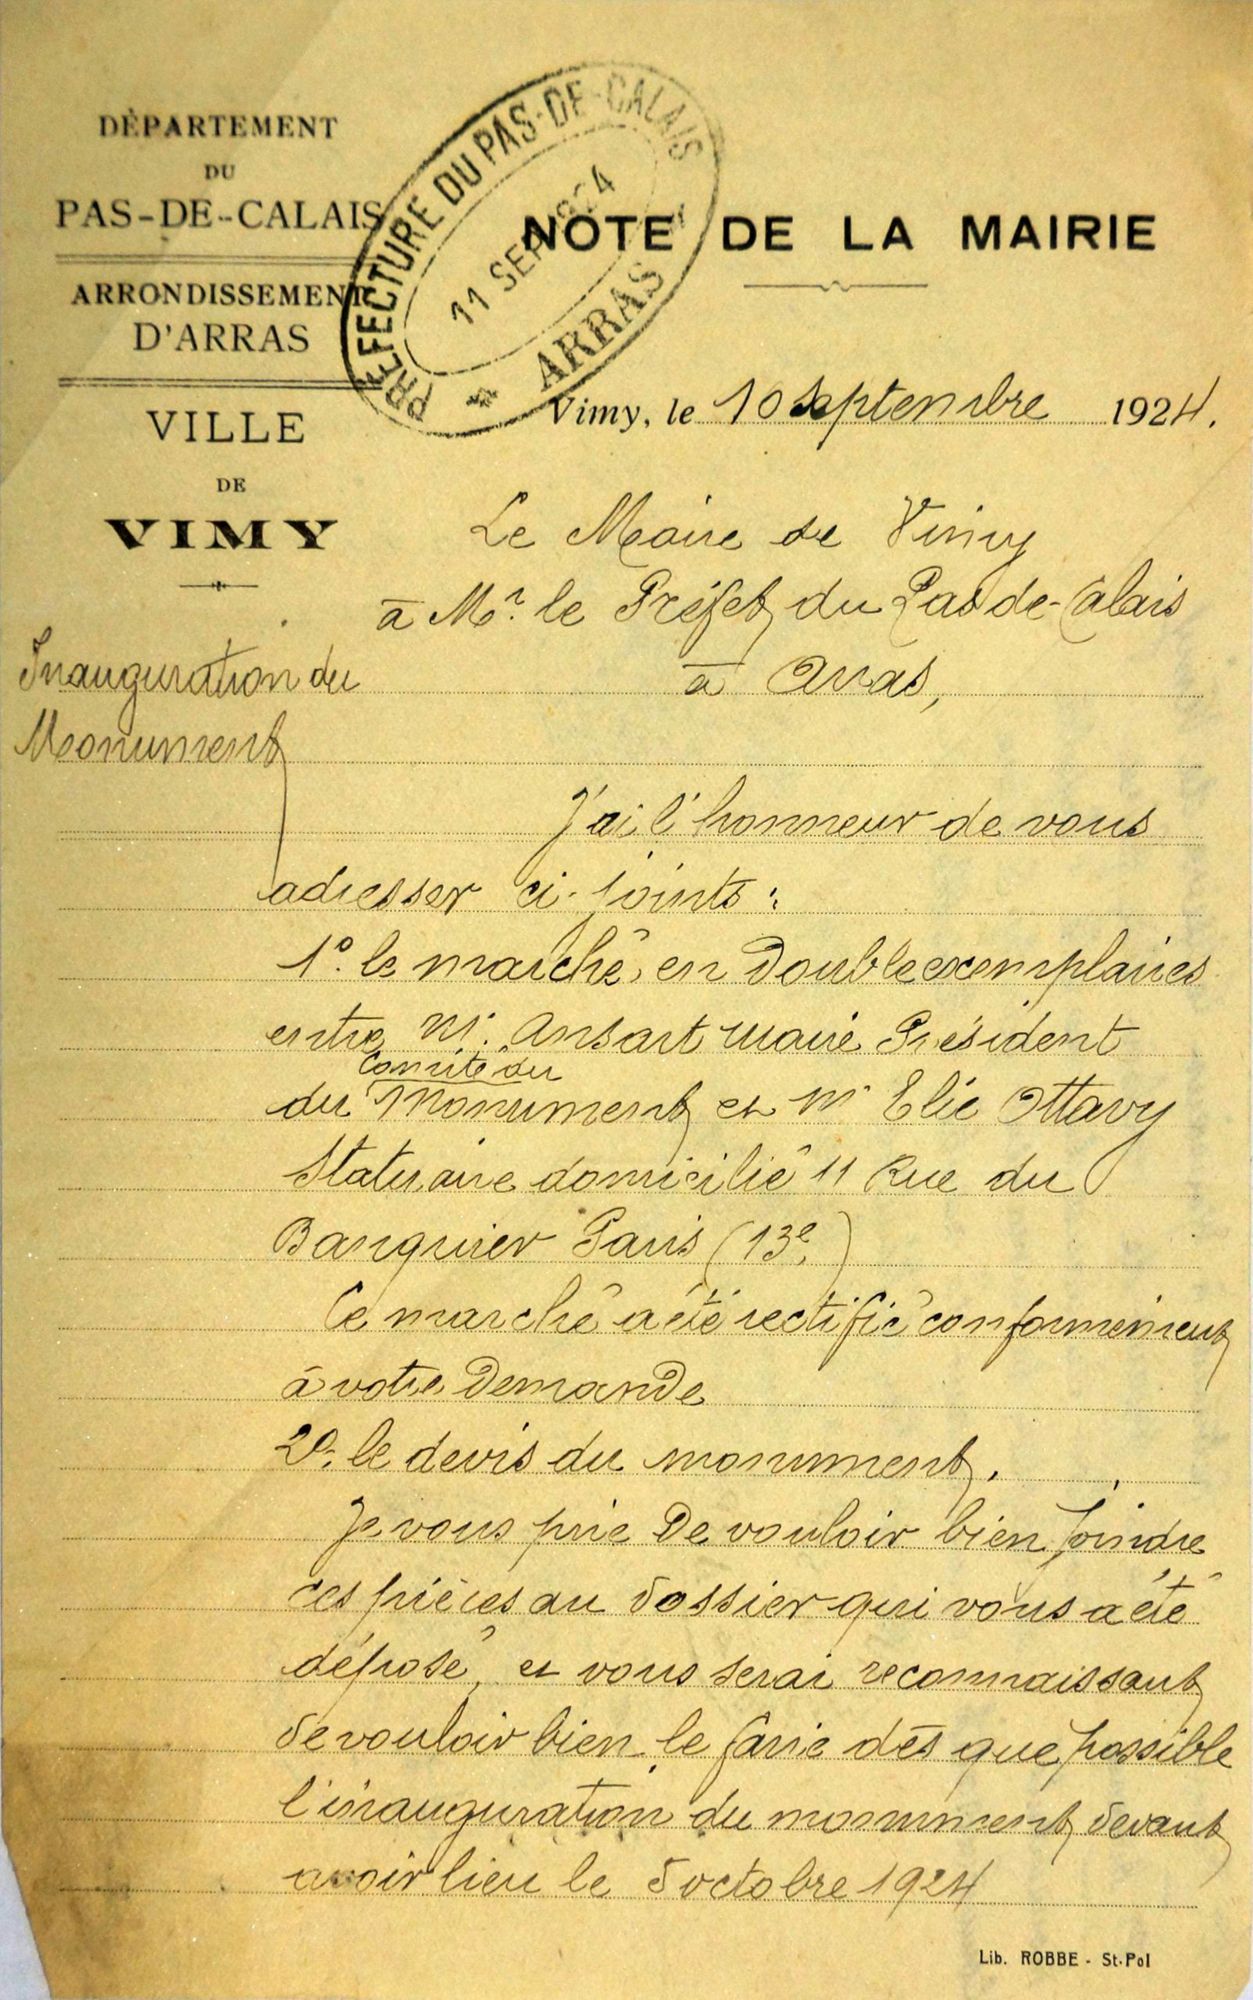 DÉPARTEMENT
DU
PAS-DE-CALAIS
ARRONDISSEMENT
D'ARRAS
VILLE
DE
VIMY
PREFECTURE DU PAS-DE-CALAIS
11 SEP 1924
* ARRAS *
NOTE DE LA MAIRIE
Vimy, le 10 septembre 1924.
Le Maire de Vimy
à Mr. le Préfet du Pas de-Calais
à Arras,
Inauguration du
Monument
J'ai l'honneur de vous
adresser ci-joints :
1º. le marché, en double exemplaires
entre Mr. Ansart maire Président
comité du
du Monument et Mr Elie Ottavy
Statuaire domicilié 11 Rue du
Banquier Paris (13e.)
Ce marché a été rectifié conformément
à votre demande
2º. le devis du monument.
Je vous prie de vouloir bien joindre
ces pièces au dossier qui vous a été
déposé, et vous serai reconnaissant
de vouloir bien le faire dès que possible
l'inauguration du monument devant
avoir lieu le 5 octobre 1924
Lib. ROBBE - St-Pol